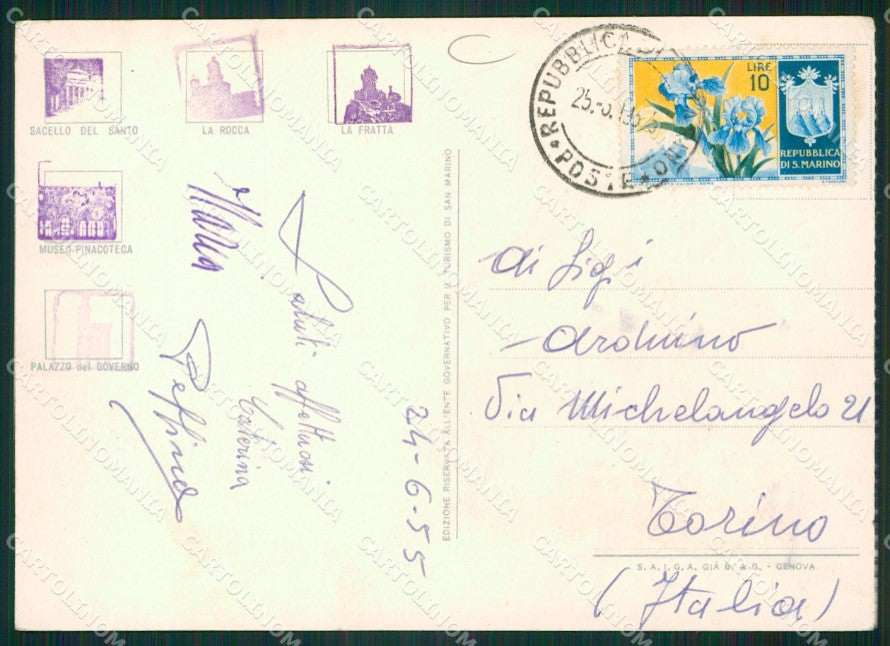 SACELLO DEL SANTO
LA ROCCA
LA FRATTA
MUSEO-PINACOTECA
PALAZZO del GOVERNO
Maria
Saluti affettuosi
Caterina
Peppino
24-6-55
EDIZIONE RISERVATA ALL'ENTE GOVERNATIVO PER IL TURISMO DI SAN MARINO
REPUBBLICA DI
25.-6.1955
POSTE
LIRE
10
REPUBBLICA
DI S. MARINO
Luigi
Arduino
Via Michelangelo 21
Torino
S. A. I. G. A. GIÀ B. & G. - GENOVA
(Italia)
CARTOLINOMANIA